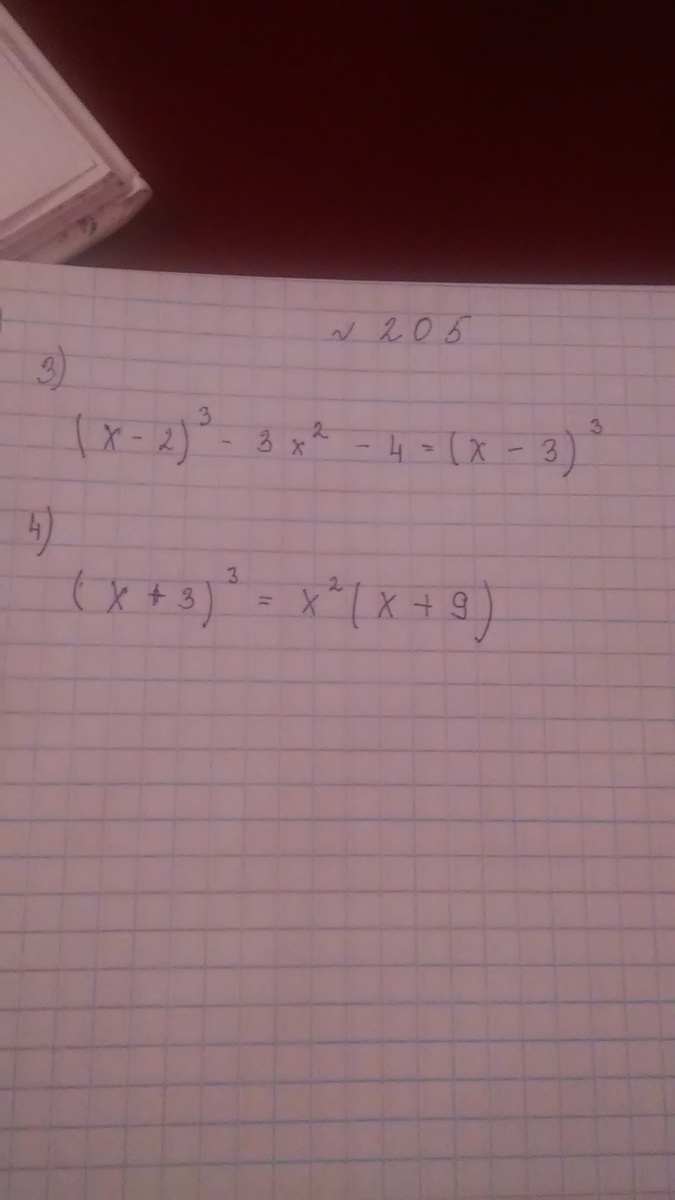 № 205
3)
(x - 2)³ - 3x² - 4 = (x - 3)³
4)
(x + 3)³ = x²(x + 9)